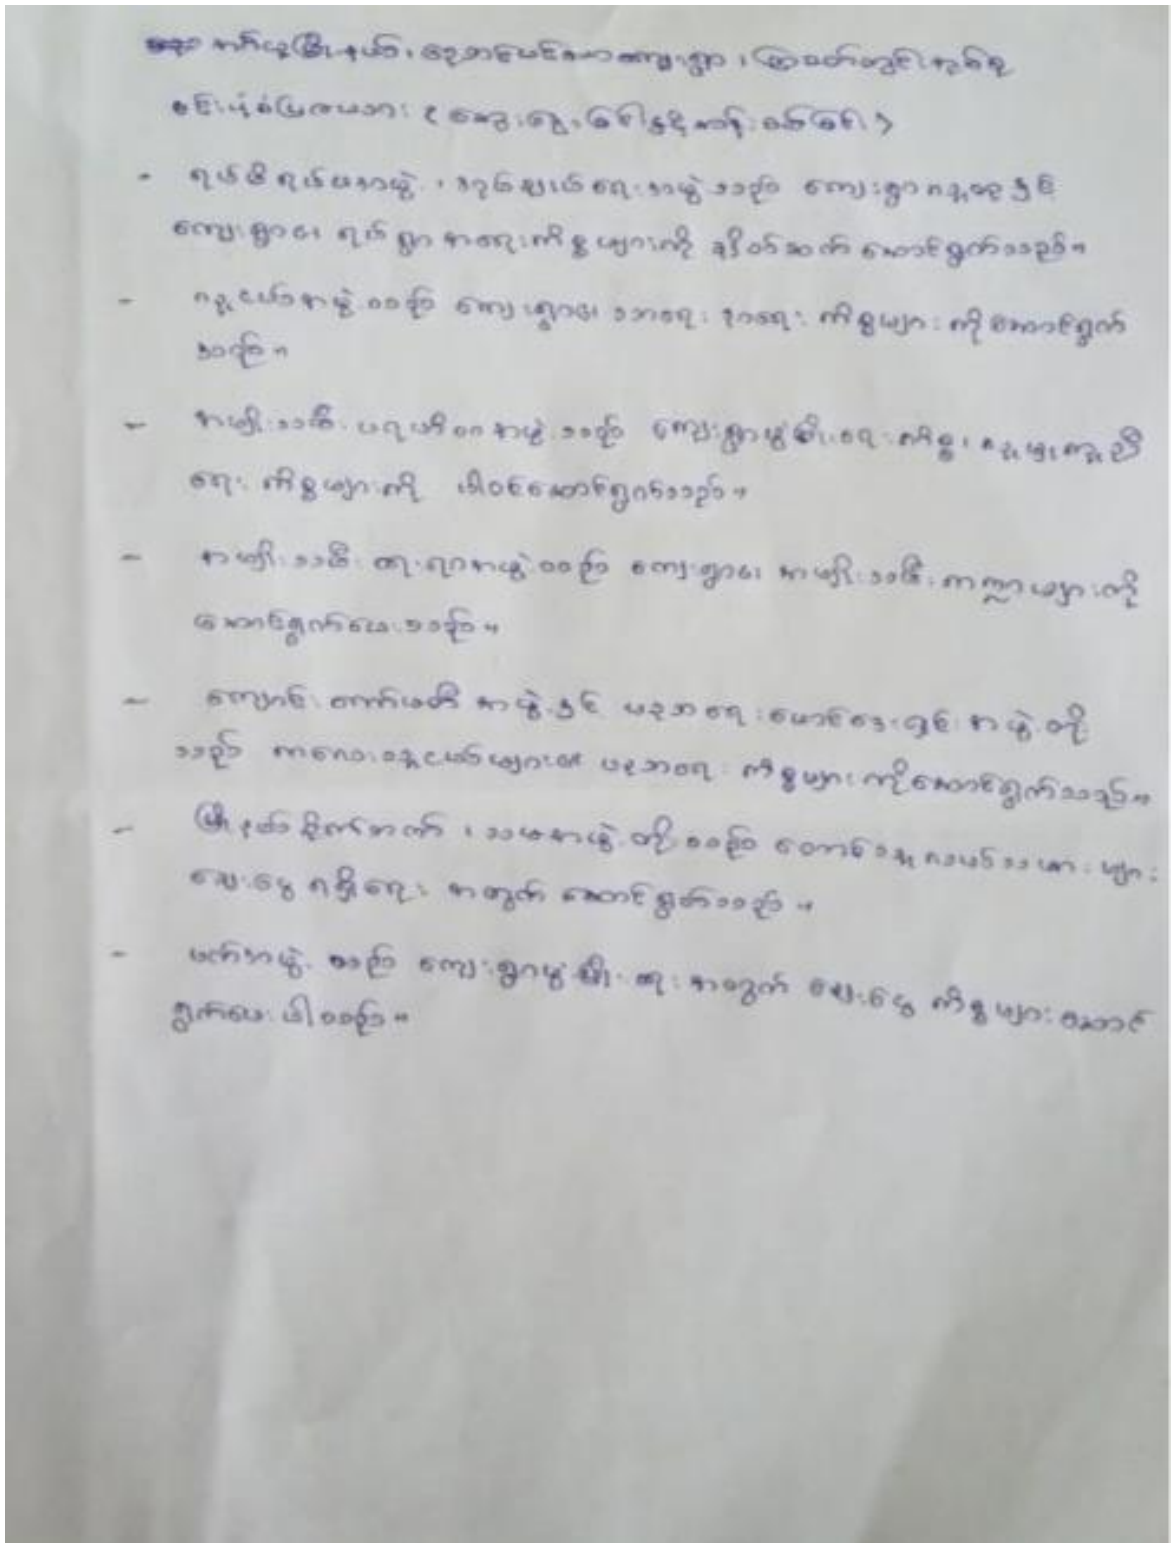 မြို့နယ်၊ ကျေးရွာ၊
- ရပ်မိရပ်ဖအဖွဲ့၊ အုပ်ချုပ်ရေးအဖွဲ့သည် ကျေးရွာလူထုနှင့်
ကျေးရွာ၏ ရပ်ရွာအရေးကိစ္စများကို ဆောင်ရွက်သည်။
- လူငယ်အဖွဲ့သည် ကျေးရွာ၏ သာရေး နာရေး ကိစ္စများကိုဆောင်ရွက်
သည်။
- အမျိုးသမီး ပရဟိတအဖွဲ့သည် ကျေးရွာဖွံ့ဖြိုးရေးကိစ္စ၊ လူမှုကူညီ
ရေး ကိစ္စများကို ပါဝင်ဆောင်ရွက်သည်။
- အမျိုးသမီးရေးရာအဖွဲ့သည် ကျေးရွာ၏ အမျိုးသမီးကဏ္ဍများကို
ဆောင်ရွက်ပေးသည်။
- ကျောင်းကော်မတီအဖွဲ့နှင့် ပညာရေး အဖွဲ့တို့
သည် ကလေးလူငယ်များ၏ ပညာရေး ကိစ္စများကိုဆောင်ရွက်သည်။
- မြို့နယ်စိုက်ဘဏ်၊ သမအဖွဲ့တို့သည် တောင်သူလယ်သမားများ
ချေးငွေရရှိရေး အတွက် ဆောင်ရွက်သည်။
- မက်အဖွဲ့သည် ကျေးရွာဖွံ့ဖြိုးရေးအတွက် ချေးငွေကိစ္စများဆောင်
ရွက်ပေးပါသည်။